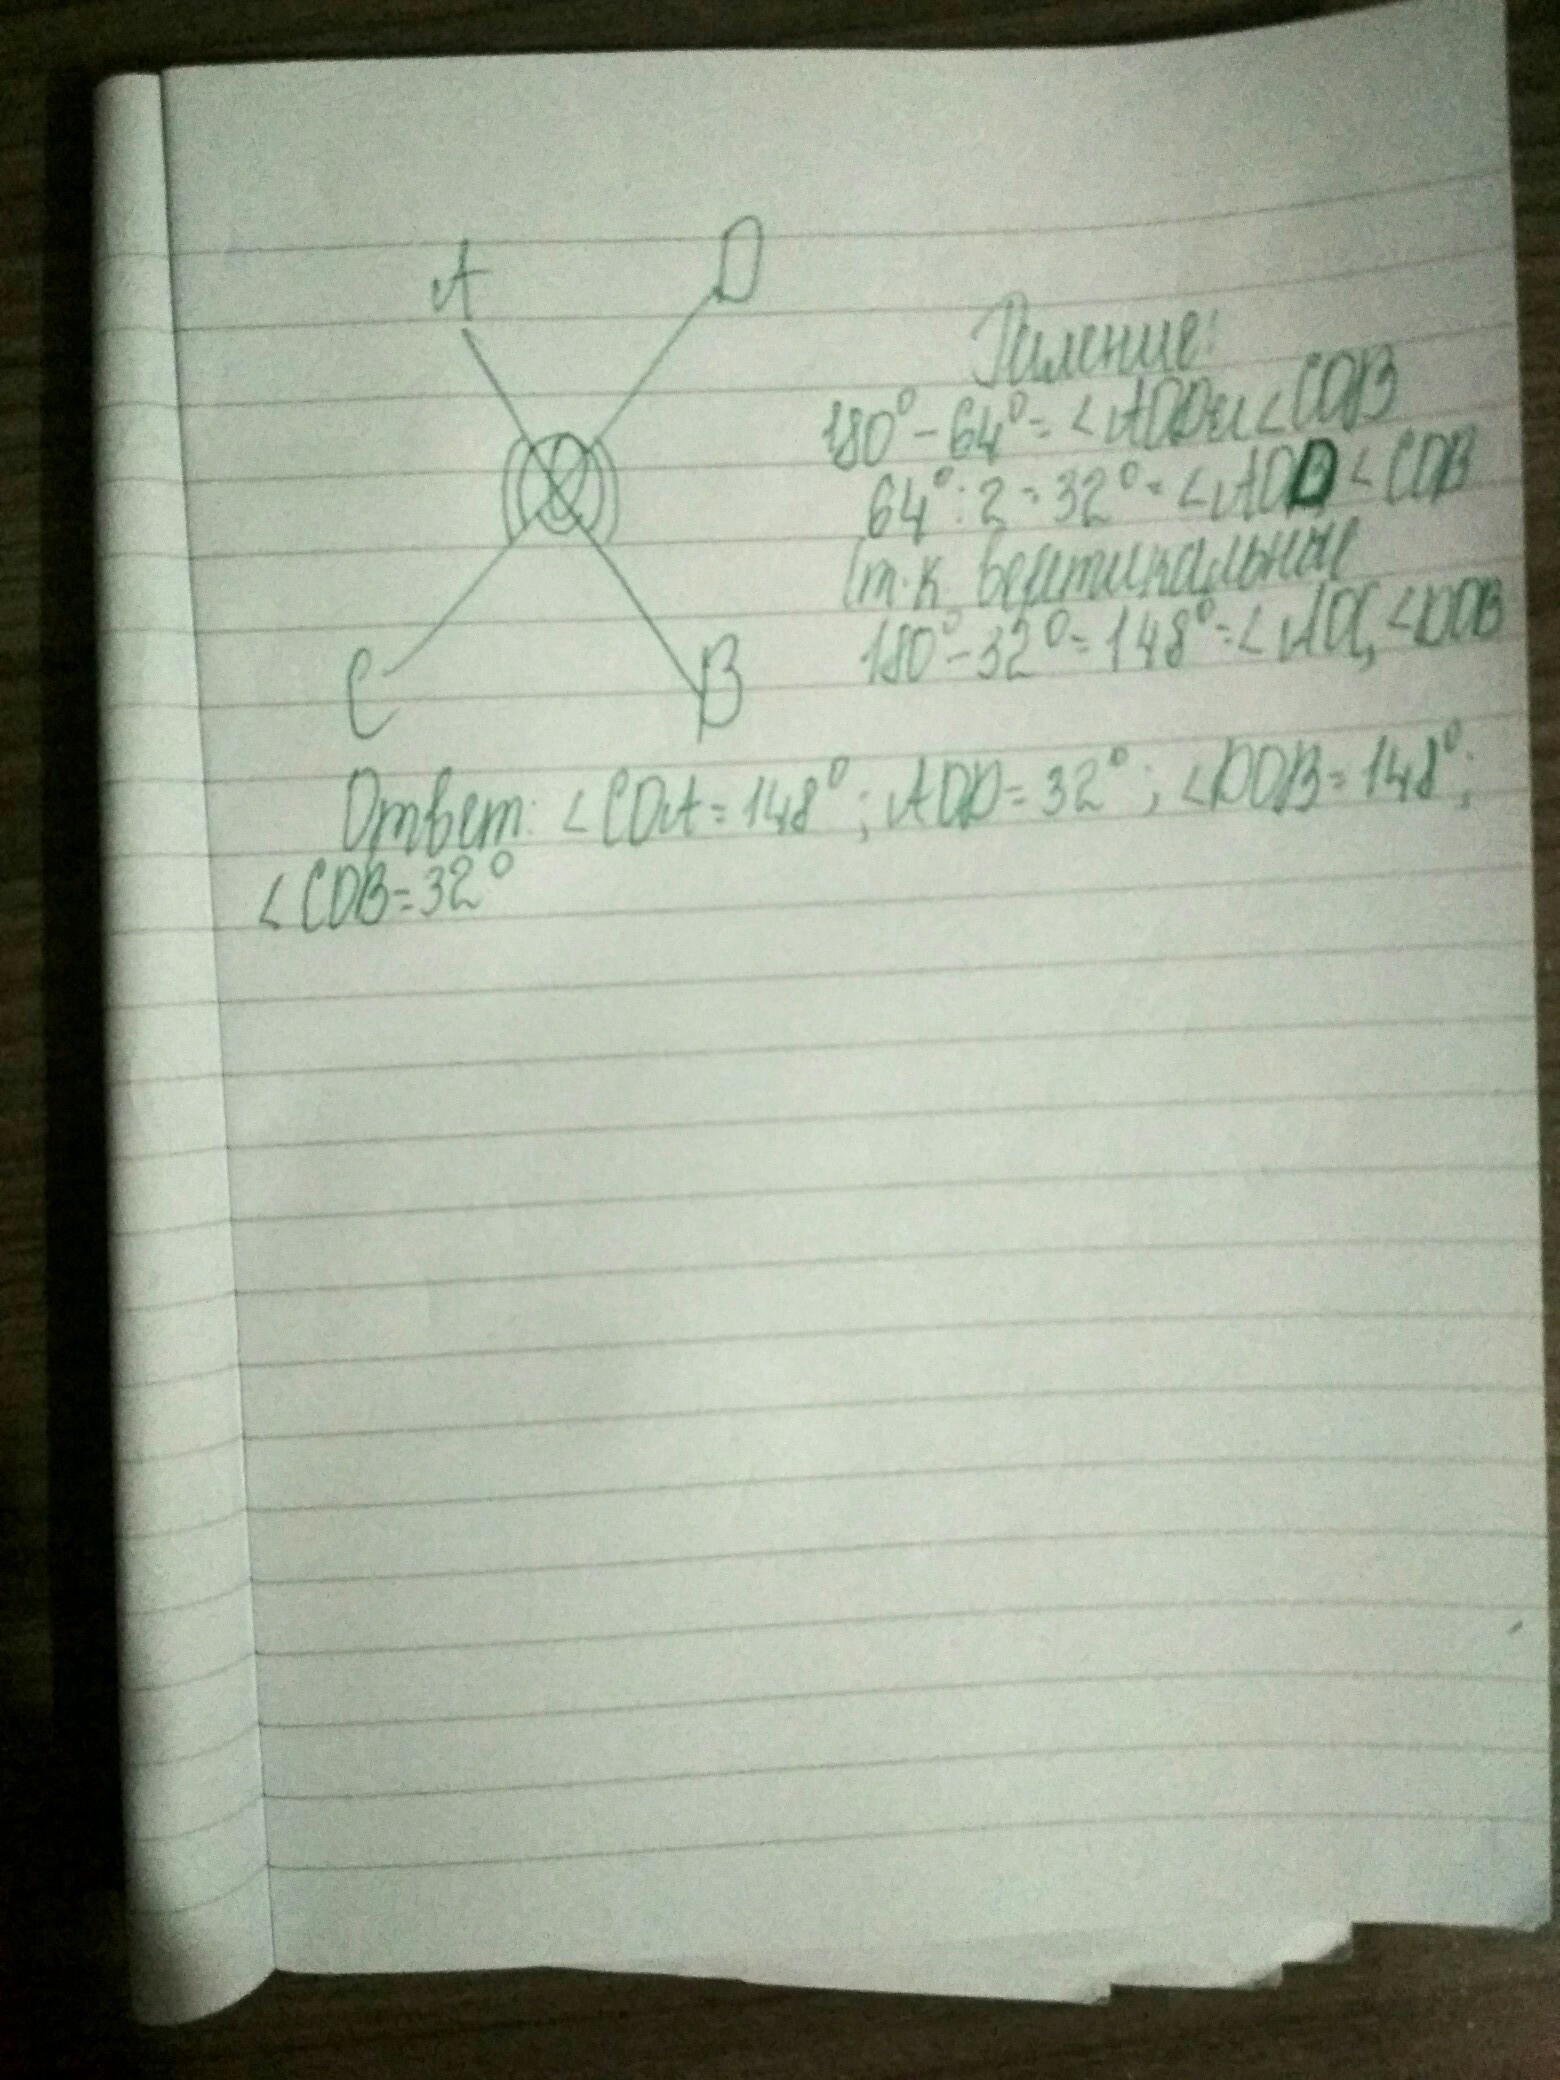 A D
O
C B
Решение:
180° - 64° = <AOD и <COB
64° : 2 = 32° = <AOD <COB
(т.к вертикальные
180° - 32° = 148° = <AOC, <DOB
Ответ: <COA = 148°; AOD = 32°; <DOB = 148°;
<COB = 32°